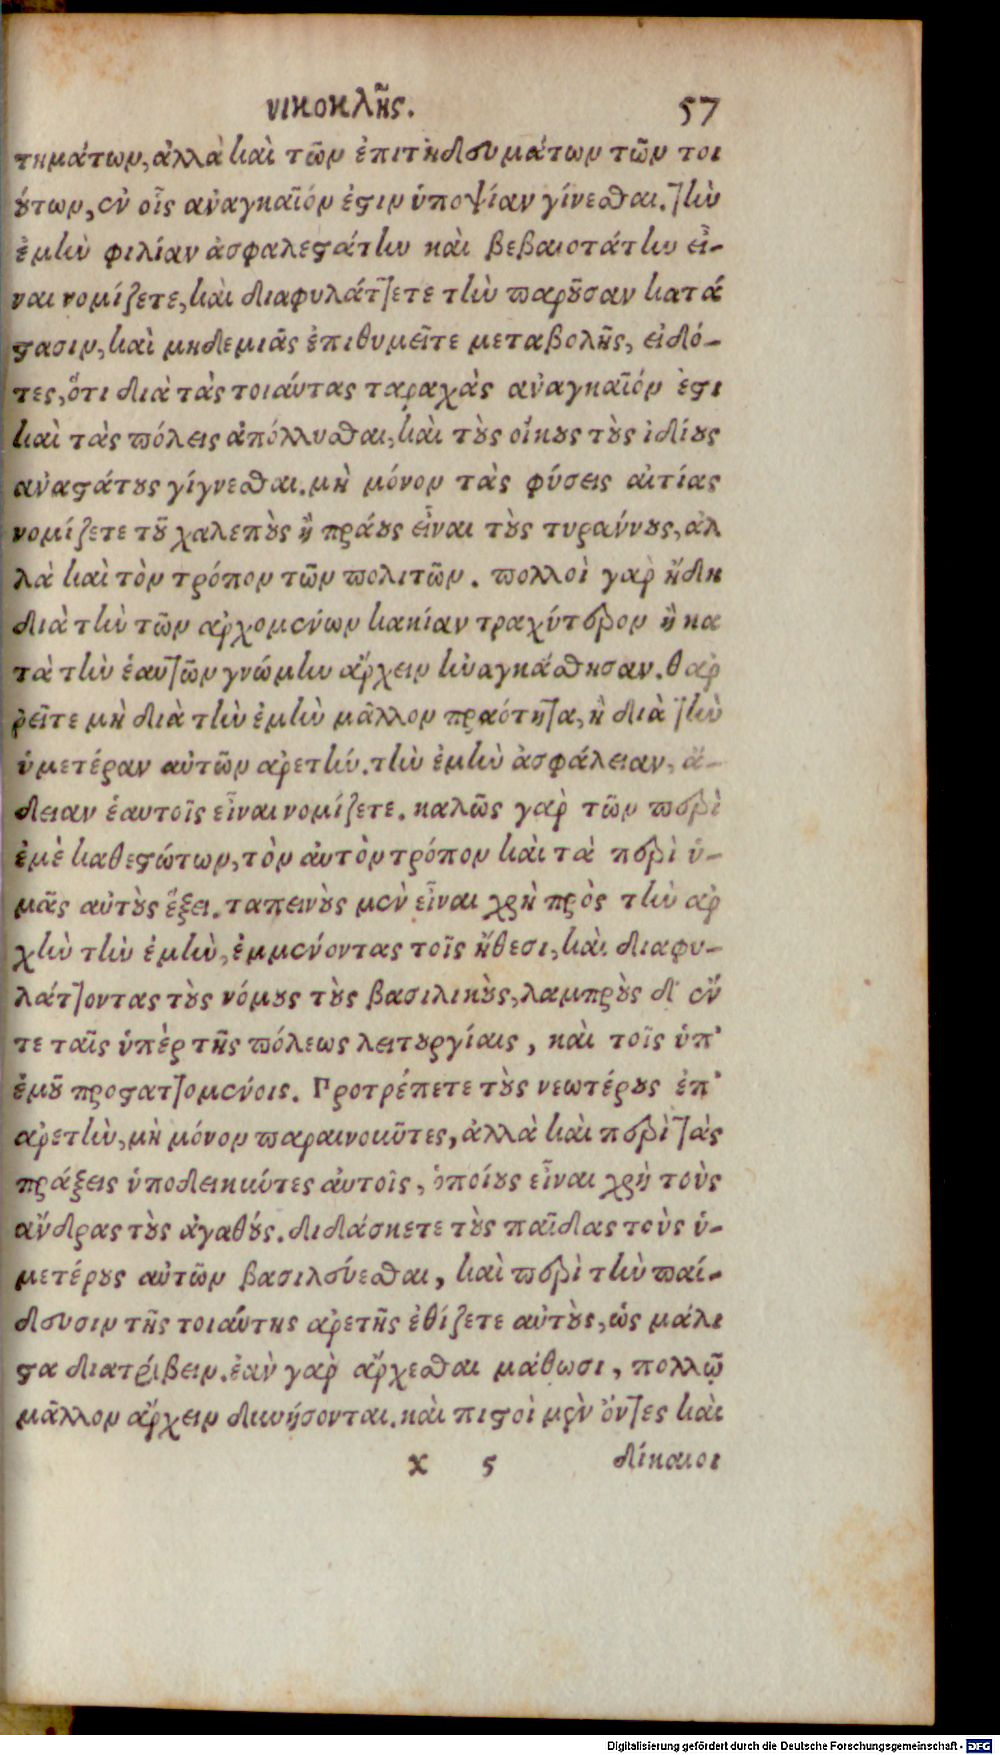 νικοκλῆς. 57
τημάτων, ἀλλὰ καὶ τῶν ἐπιτηδευμάτων τῶν τοι
ούτων, ἐν οἷς ἀναγκαῖόν ἐστιν ὑποψίαν γίνεσθαι. τὴν
ἐμὴν φιλίαν ἀσφαλεστάτην καὶ βεβαιοτάτην εἶ-
ναι νομίζετε, καὶ διαφυλάττετε τὴν παροῦσαν κατά
στασιν, καὶ μηδεμιᾶς ἐπιθυμεῖτε μεταβολῆς, εἰδό-
τες, ὅτι διὰ τὰς τοιαύτας ταραχὰς ἀναγκαῖόν ἐστι
καὶ τὰς πόλεις ἀπόλλυσθαι, καὶ τοὺς οἴκους τοὺς ἰδίους
ἀναστάτους γίγνεσθαι. μὴ μόνον τὰς φύσεις αἰτίας
νομίζετε τοῦ χαλεποὺς ἢ πράους εἶναι τοὺς τυράννους, ἀλ
λὰ καὶ τὸν τρόπον τῶν πολιτῶν. πολλοὶ γὰρ ἤδη
διὰ τὴν τῶν ἀρχομένων κακίαν τραχύτερον ἢ κα
τὰ τὴν ἑαυτῶν γνώμην ἄρχειν ἠναγκάσθησαν. θαρ
ρεῖτε μὴ διὰ τὴν ἐμὴν μᾶλλον πραότητα, ἢ διὰ τὴν
ὑμετέραν αὐτῶν ἀρετήν. τὴν ἐμὴν ἀσφάλειαν, ἄ-
δειαν ἑαυτοῖς εἶναι νομίζετε. καλῶς γὰρ τῶν περὶ
ἐμὲ καθεστώτων, τὸν αὐτὸν τρόπον καὶ τὰ περὶ ὑ-
μᾶς αὐτοὺς ἕξει. ταπεινοὺς μὲν εἶναι χρὴ πρὸς τὴν ἀρ
χὴν τὴν ἐμὴν, ἐμμένοντας τοῖς ἤθεσι, καὶ διαφυ-
λάττοντας τοὺς νόμους τοὺς βασιλικοὺς, λαμπροὺς δ' ἔν
τε ταῖς ὑπὲρ τῆς πόλεως λειτουργίαις, καὶ τοῖς ὑπ'
ἐμοῦ προσταττομένοις. Προτρέπετε τοὺς νεωτέρους ἐπ'
ἀρετὴν, μὴ μόνον παραινοῦντες, ἀλλὰ καὶ περὶ τὰς
πράξεις ὑποδεικνύτες αὐτοῖς, ὁποίους εἶναι χρὴ τοὺς
ἄνδρας τοὺς ἀγαθούς. διδάσκετε τοὺς παῖδας τοὺς ὑ-
μετέρους αὐτῶν βασιλεύεσθαι, καὶ περὶ τὴν παί-
δευσιν τῆς τοιαύτης ἀρετῆς ἐθίζετε αὐτοὺς, ὡς μάλι
στα διατρίβειν. ἐὰν γὰρ ἄρχεσθαι μάθωσι, πολλῷ
μᾶλλον ἄρχειν δυνήσονται. καὶ πιστοὶ μὲν ὄντες καὶ
x 5 δίκαιοι
Digitalisierung gefördert durch die Deutsche Forschungsgemeinschaft - DFG